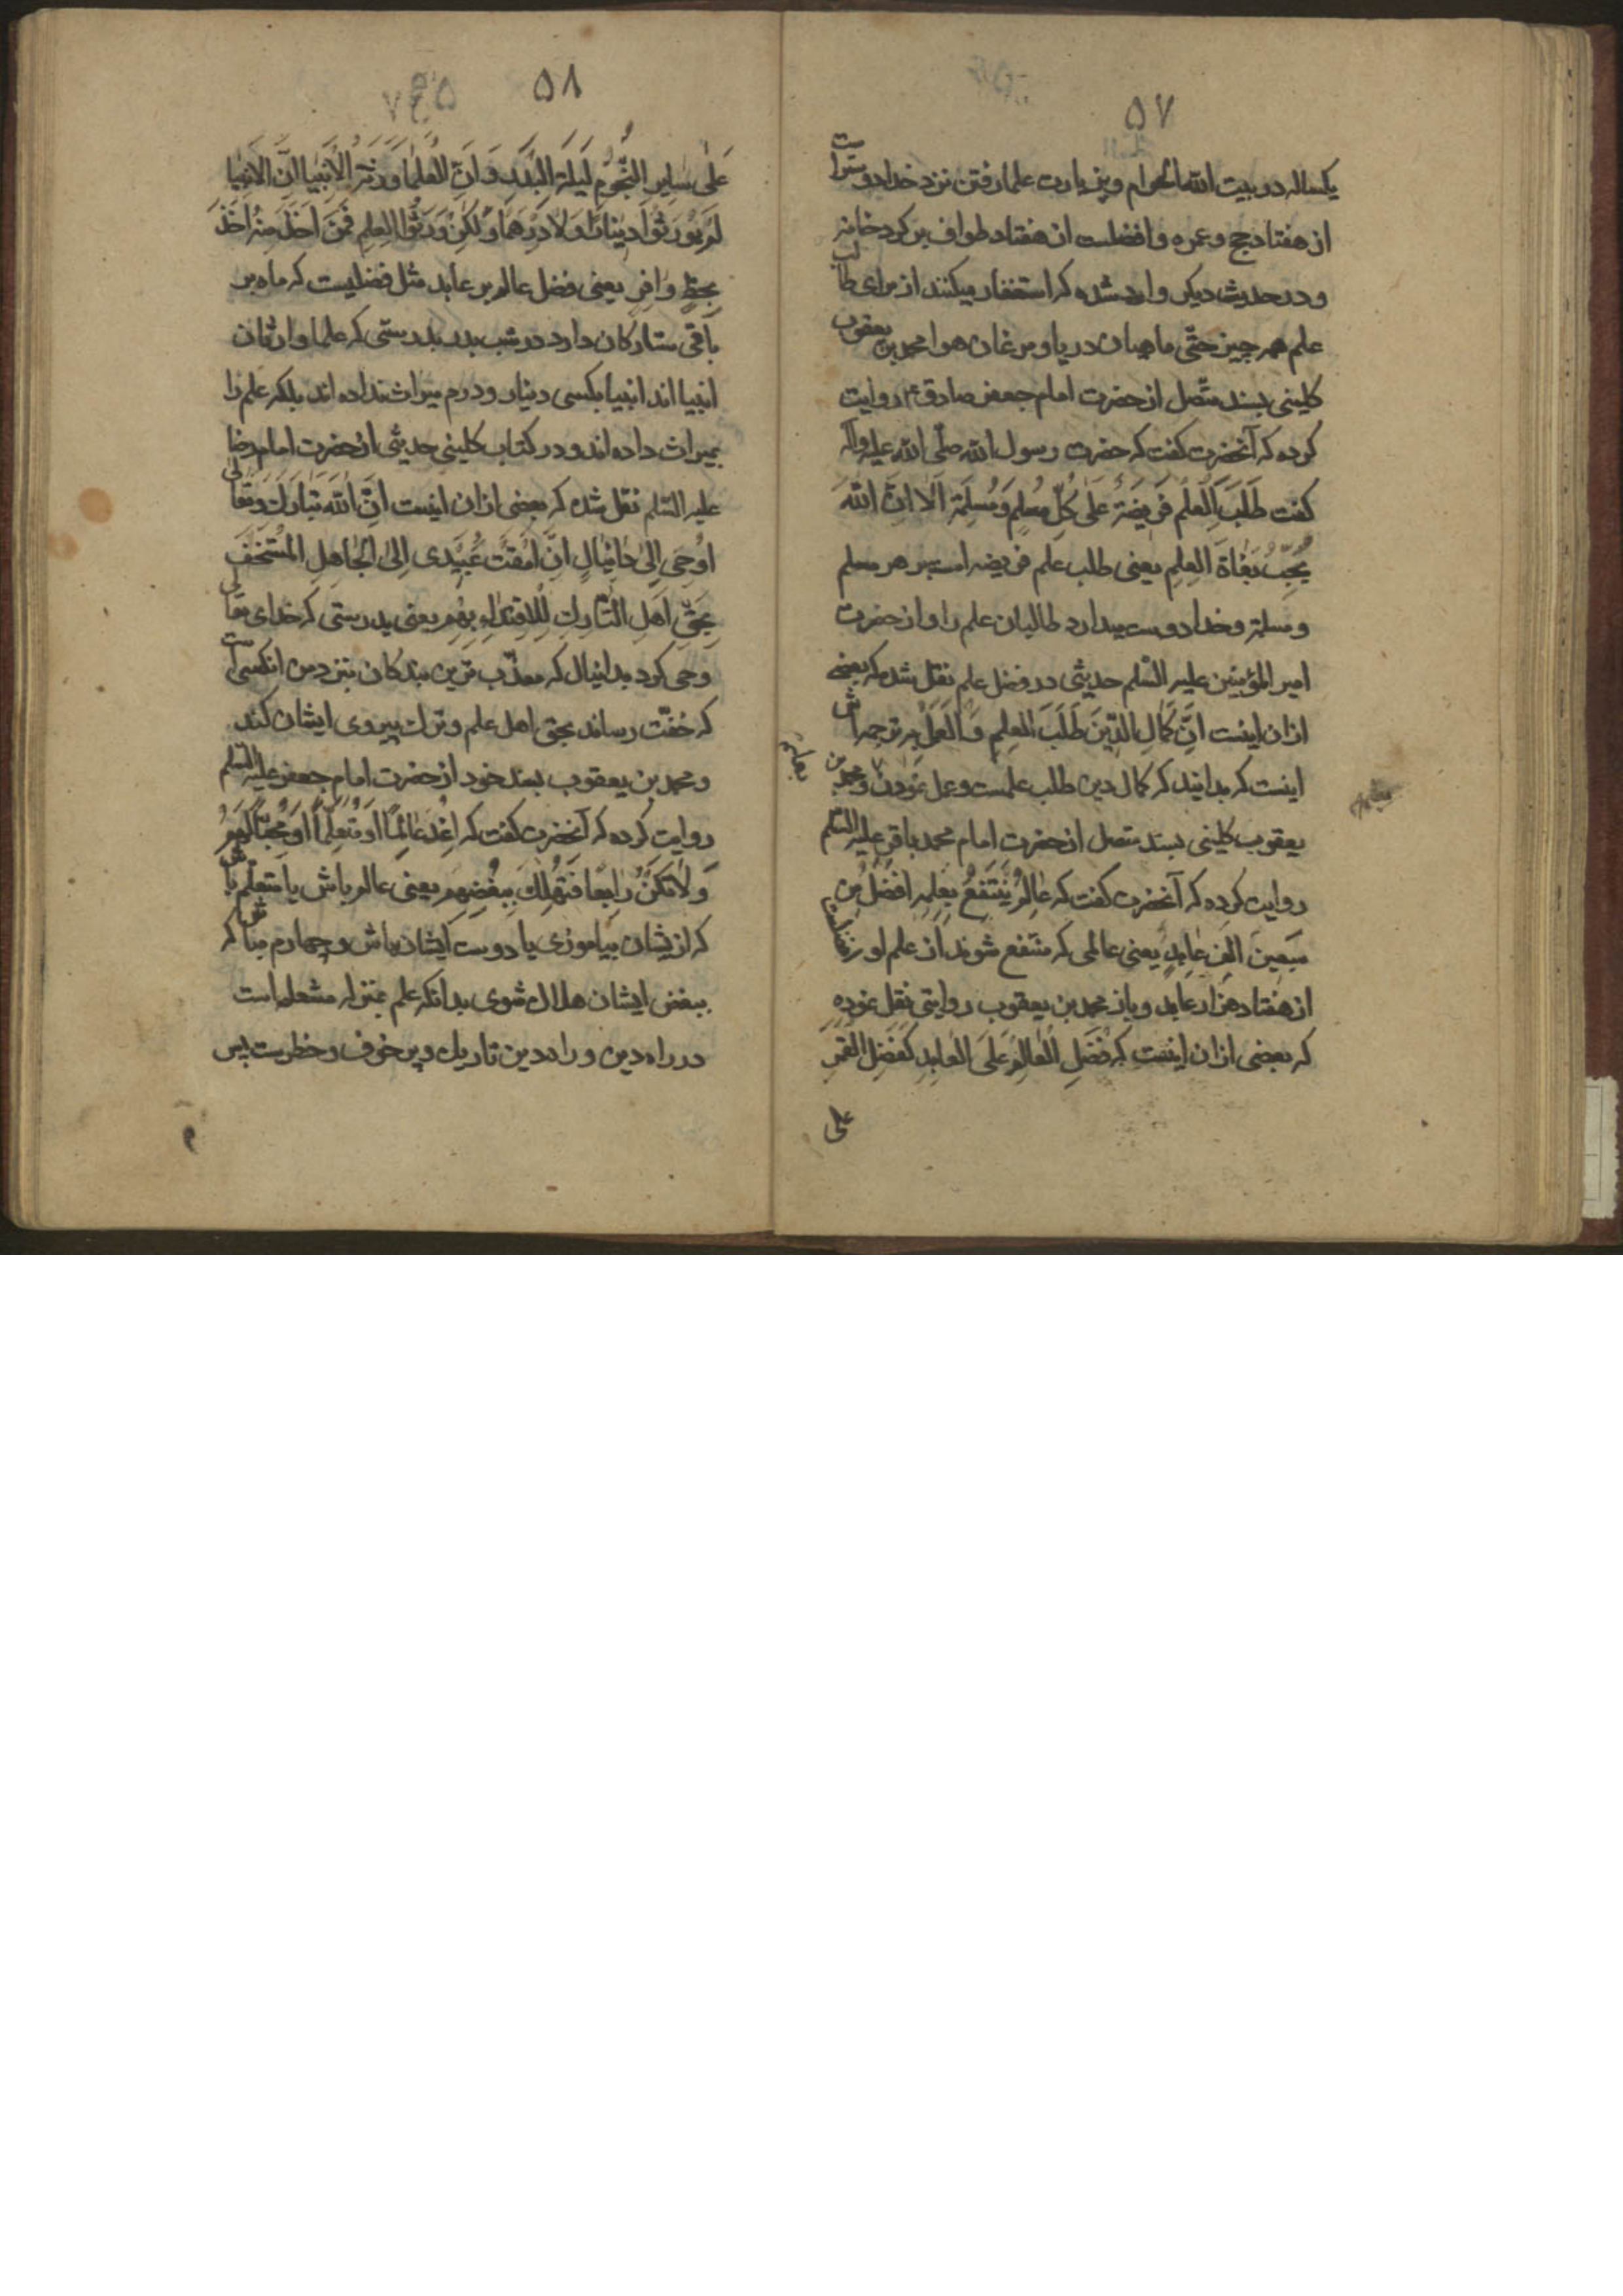 ۵۷
یکساله در بیت الله الحرام و بزیارت علما رفتن نزد خدا دوستر است
از هفتاد حج و عمره و افضلست از هفتاد طواف بر کرد خانه
و در حدیث دیکر وارد شده که استغفار میکنند از برای طالب
علم همه چیز حتّی ماهیان دریا و مرغان هوا محمد بن یعقوب
کلینی بسند متّصل از حضرت امام جعفر صادق ع روایت
کرده که آنحضرت کفت که حضرت رسول الله صلّی الله علیه وآله
کفت طَلَبَ العِلمِ فَریضَةٌ عَلی کُلِّ مُسلِمٍ وَمُسلِمَةٍ اَلا اِنَّ اللهَ
یُحِبُّ بُغاةَ العِلمِ یعنی طلب علم فریضه است بر هر مسلم
و مسلمه و خدا دوست میدارد طالبان علم را و از حضرت
امیر المؤمنین علیه السّلم حدیثی در فضل علم نقل شده که بعضی
از ان اینست اِنَّ کَمالِ الدّینَ طَلَبَ العِلمِ وَالعَمَلُ بِهِ ترجمه اش
اینست که بدانید که کمال دین طلب علمست و عمل نمودن و محمد بن
بعلم
یعقوب کلینی بسند متصل از حضرت امام محمد باقر علیه السّلم
روایت کرده که آنحضرت کفت که عالِمٌ یُنتَفَعُ بِعِلمِهِ اَفضَلُ مِن
سَبعینَ اَلفِ عابِدٍ یعنی عالمی که منتفع شوند از علم او
از هفتاد هزار عابد و باز محمد بن یعقوب روایتی نقل نموده
که بعضی از ان اینست که فَضلِ العالِمِ عَلَی العابِدِ کَفَضلِ القَمَرِ
علی
۵۸
عَلی سایِرِ النُّجُومِ لَیلَةَ البَدرِ وَ اَنَّ العُلَما وَرَثَةُ الاَنبِیا اِنَّ الاَنبِیا
لَم یُوَرِّثُوا دینارًا وَلا دِرهَمًا وَلکِن وَرَّثُوا العِلمِ فَمَن اَخَذَ مِنهُ اَخَذَ
بِحَظٍّ وافِرٍ یعنی فضل عالم بر عابد مثل فضلیست که ماه بر
باقی ستارکان دارد در شب بدر بدرستی که علما وارثان
انبیا اند انبیا بکسی دینار و درم میراث نداده اند بلکه علم را
بمیراث داده اند و در کتاب کلینی حدیثی از حضرت امام رضا
علیه السّلم نقل شده که بعضی از ان اینست اِنَّ اللهَ تَبارَکَ وَتَعالی
اَوحی اِلی دانیالِ اِنَّ اَمقَتَ عَبیدی اِلی الجاهِلِ المُستَخِفَّ
بِحَقِّ اَهلِ التّارِکِ لِلاِقتِداءِ بِهِم یعنی بدرستی که خدای تعالی
وحی کرد بدانیال که معذّب ترین بندکان بنزد من انکسی است
که خفّت رساند بحق اهل علم و ترک پیروی ایشان کند
و محمد بن یعقوب بسند خود از حضرت امام جعفر علیه السّلم
روایت کرده که آنحضرت کفت که اُغدُ عالِمًا اَو مُتَعَلِّمًا اَو مُحِبًّا لَهُم
وَلا تَکُن رابِعًا فَتَهلِکَ بِبُغضِهِم یعنی عالم باش یا متعلّم باش
که ازیشان بیاموزی یا دوست ایشان باش و چهارم مباش که
ببغض ایشان هلاک شوی بدانکه علم بمنزله مشعله است
در راه دین و راه دین تاریک و پر خوف و خطرست پس